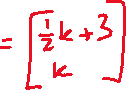 = [ ½k + 3
k ]